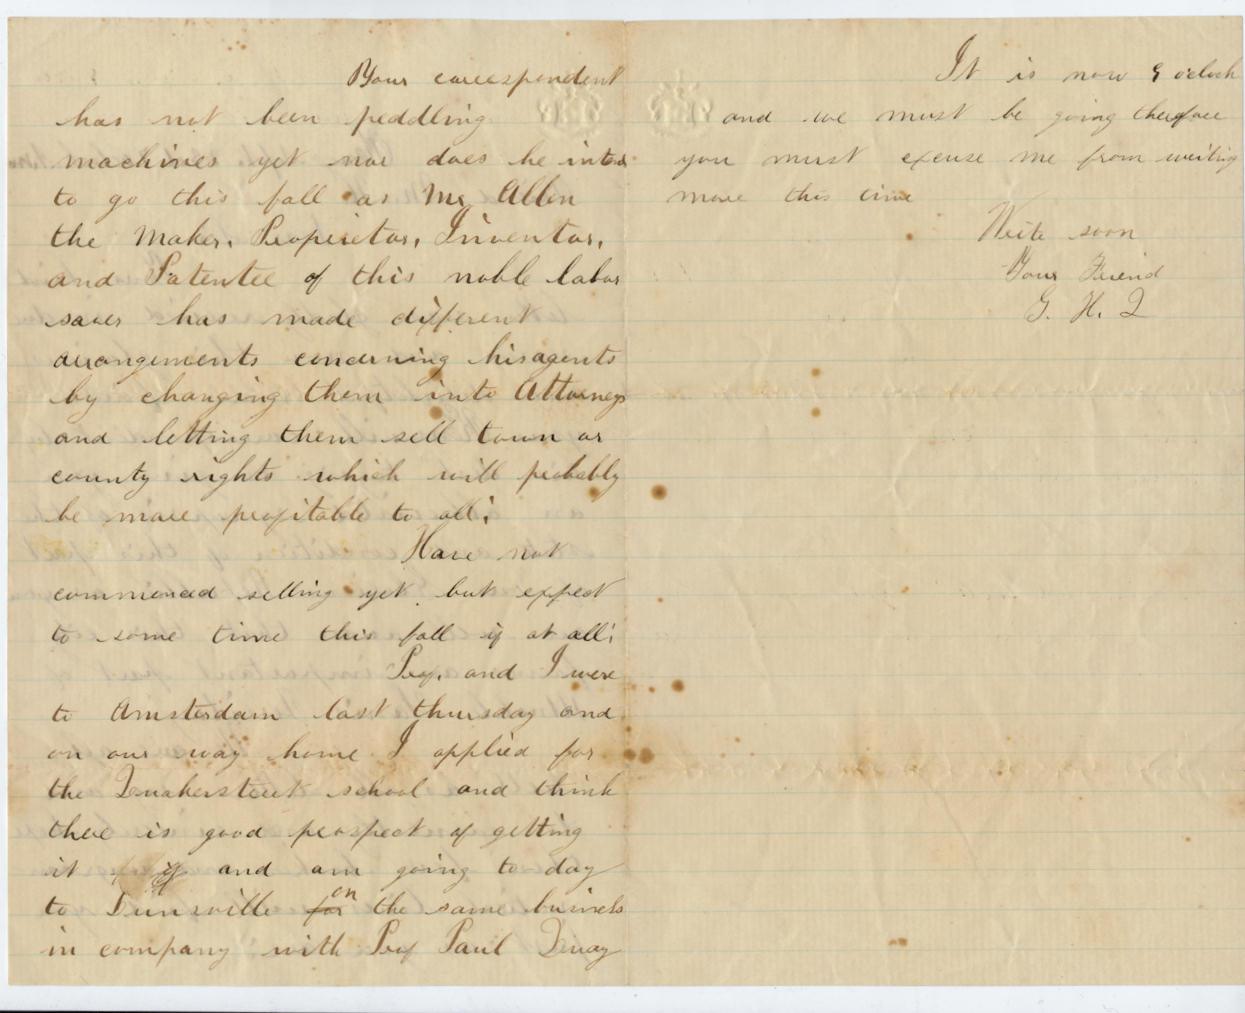 Your correspondent
has not been peddling
machines yet nor does he intend
to go this fall as Mr Allen
the Maker, Proprietor, Inventor,
and Patentee of this noble labor
saver has made different
arrangements concerning his agents
by changing them into Attorneys
and letting them sell town or
county rights which will probably
be more profitable to all;
Have not
commenced selling yet but expect
to some time this fall if at all;
Prof. and I were
to Amsterdam last thursday and
on our way home I applied for
the Quakerstreet school and think
there is good prospect of getting
it and am going to day
to Dunsville for on the same business
in company with Prof Paul Quay
It is now 9 o'clock
and we must be going therefore
you must excuse me from writing
more this time
Write soon
Your Friend
G. H. Q